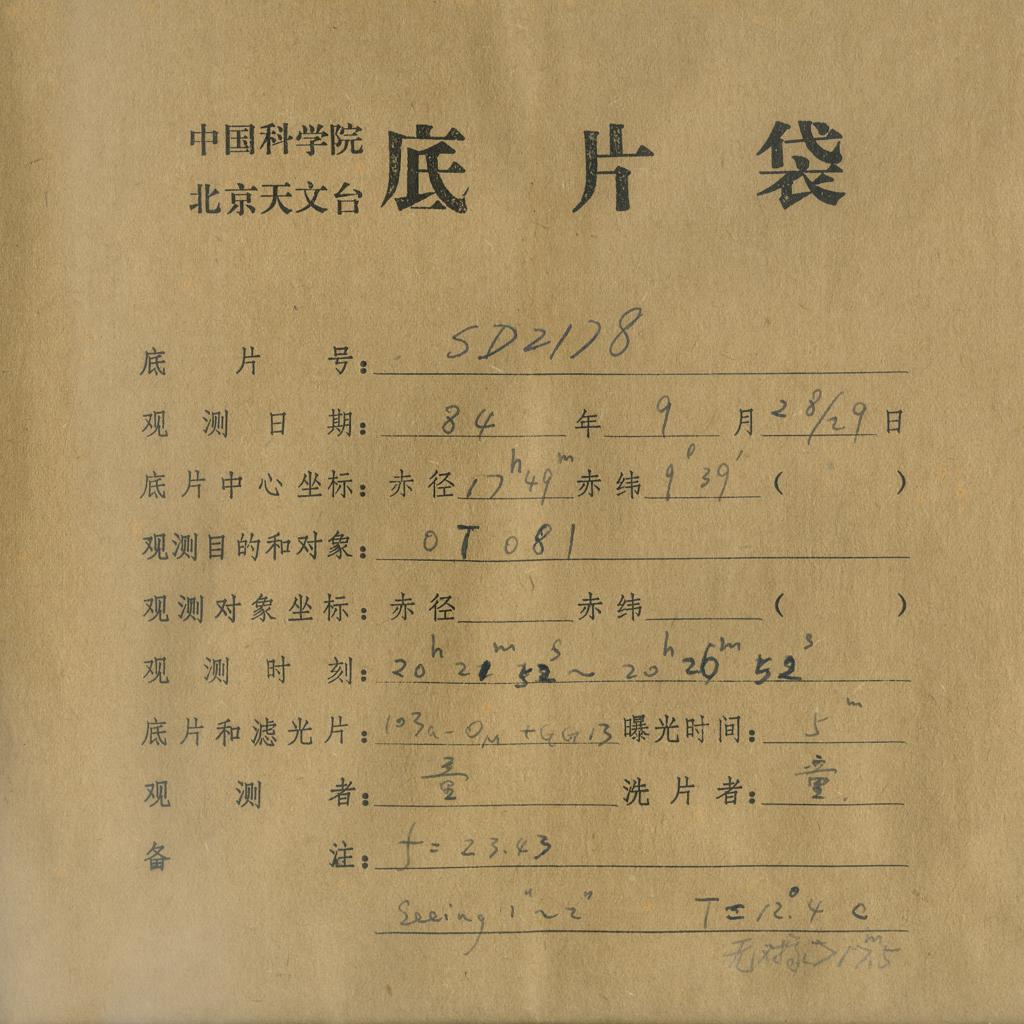 中国科学院
北京天文台
底片袋
底片号：SD2178
观测日期：84年9月28/29日
底片中心坐标：赤径17h49m赤纬9°39′（ ）
观测目的和对象：OT 081
观测对象坐标：赤径 赤纬 （ ）
观测时刻：20h21m52s～20h26m52s
底片和滤光片：103a-OM+GG13 曝光时间：5m
观测者：童 洗片者：童
备注：f=23.43
Seeing 1"～2" T=12°.4 C
无对象>17m.5